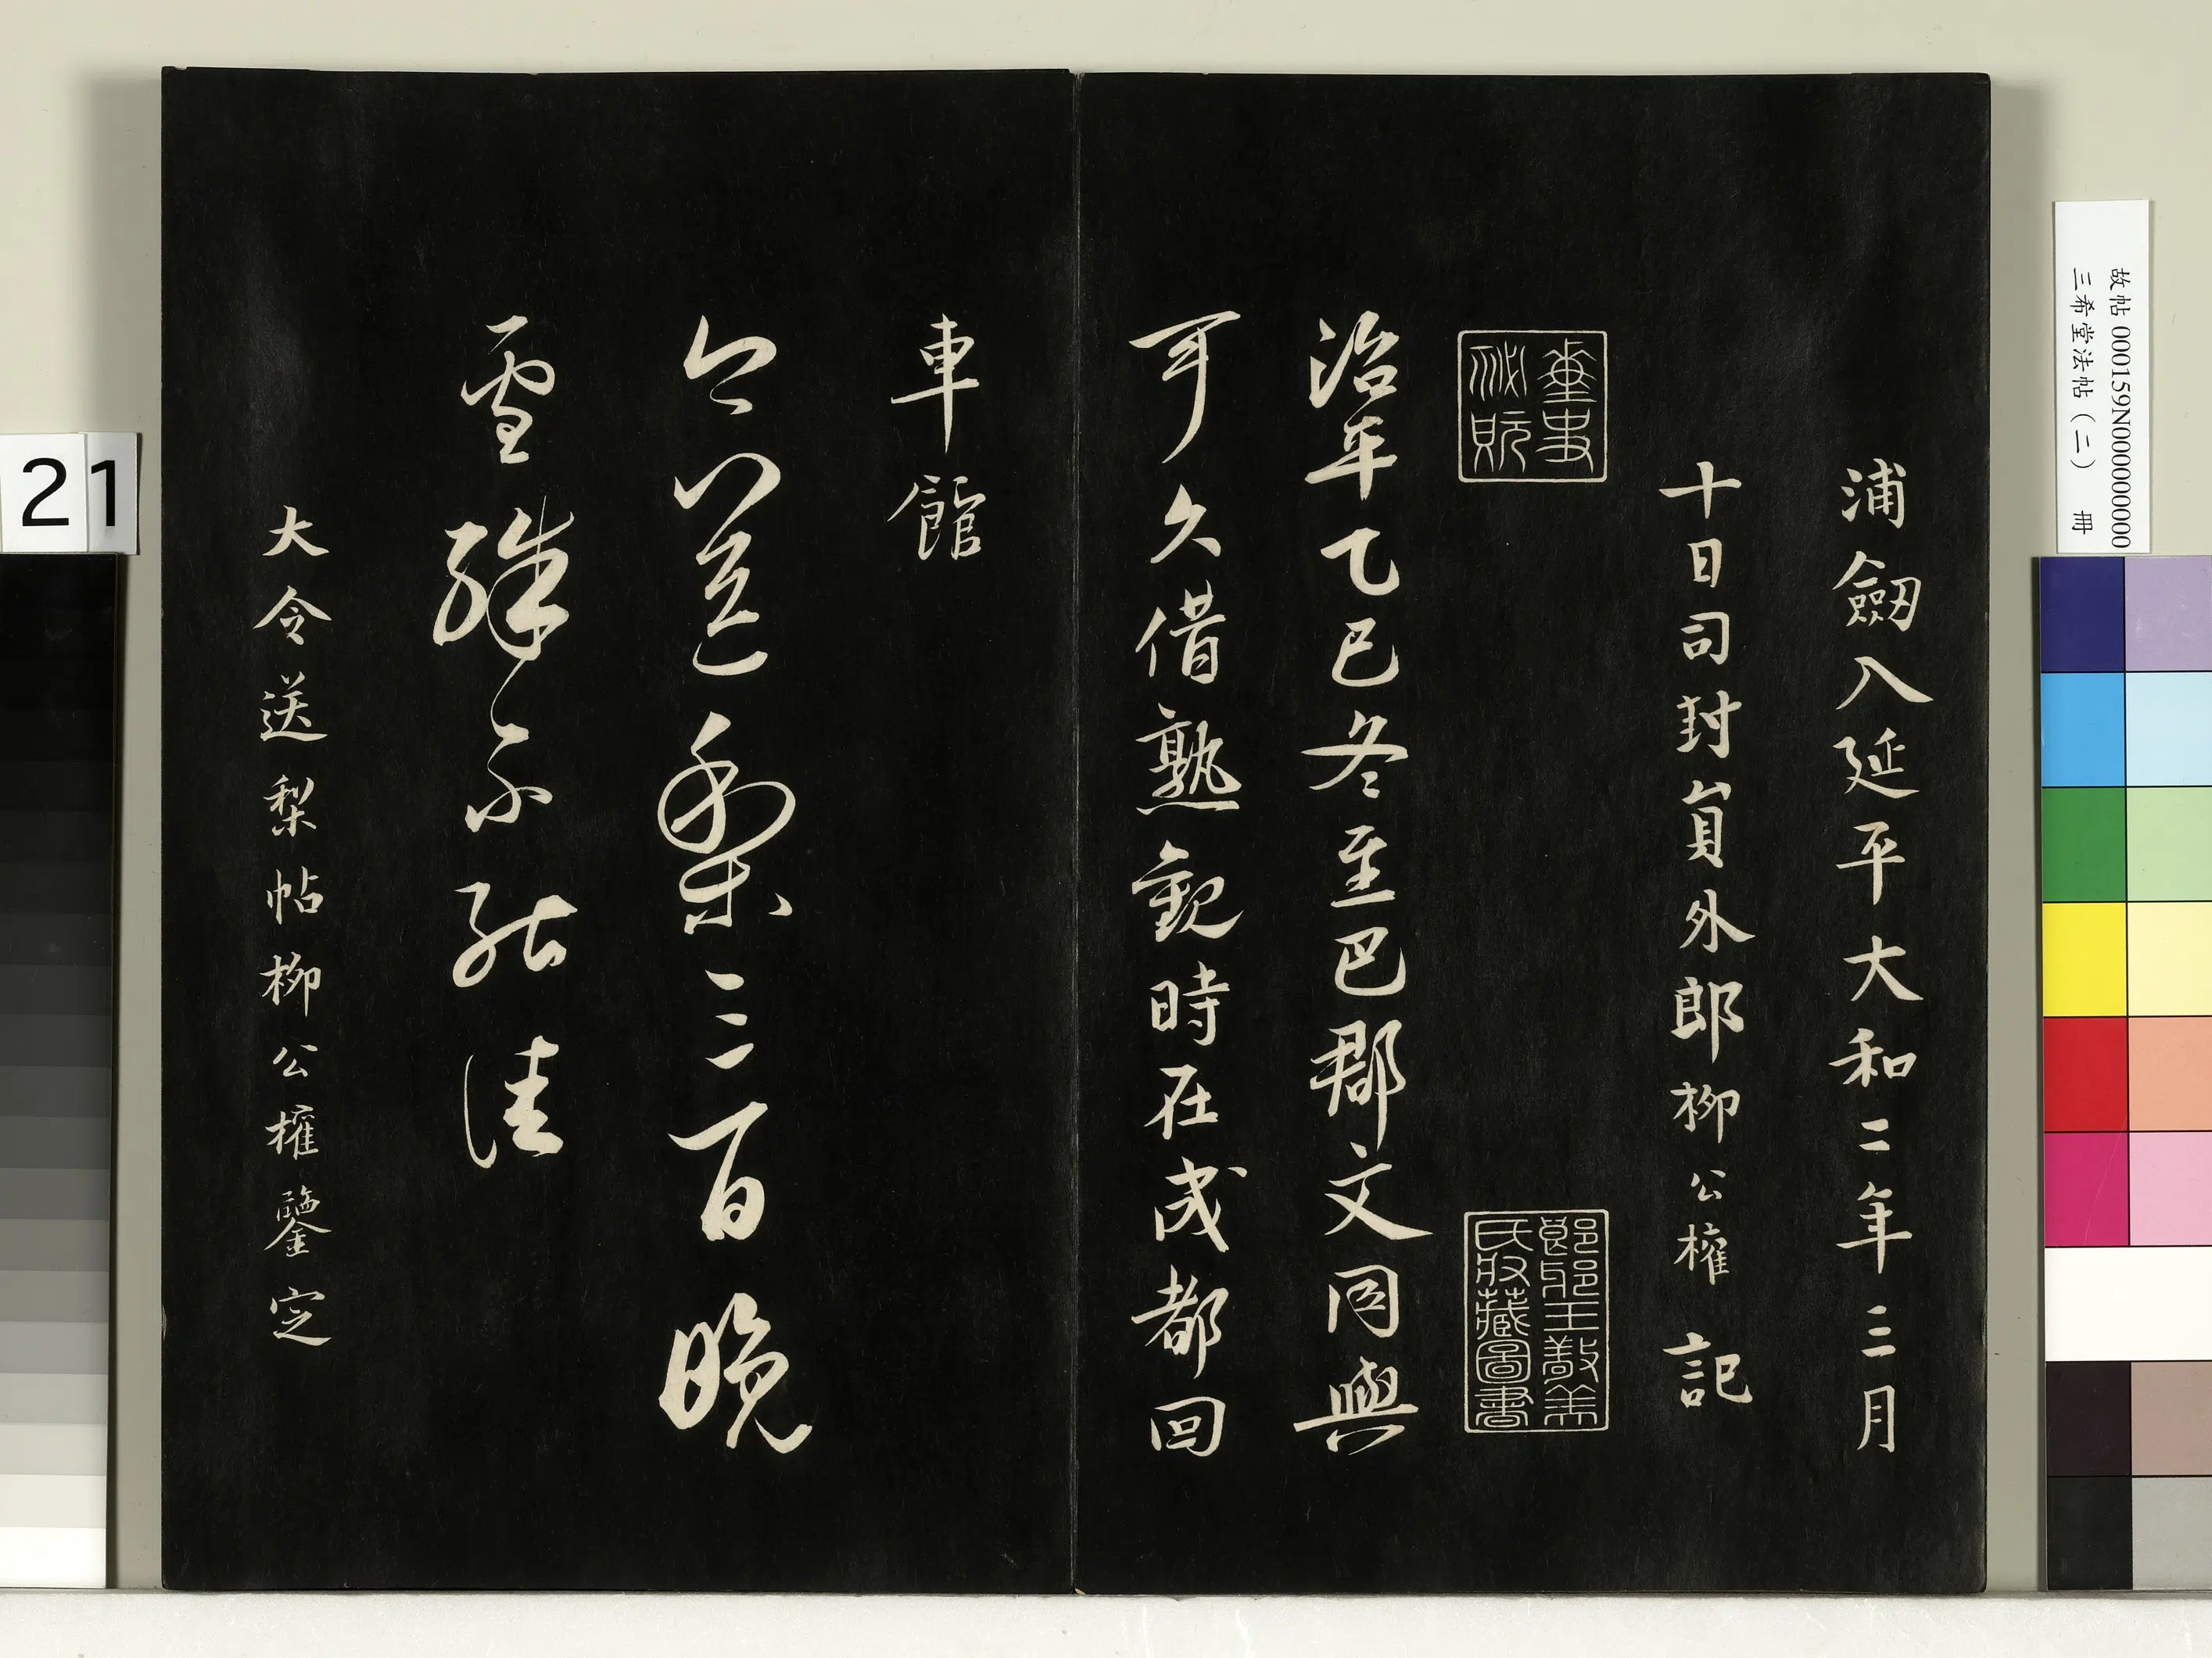 浦劒入延平大和二年三月
十日司封貟外郎柳公權記
琅邪王敬美
氏收藏圖書
治年乙巳冬至巴郡文同與
可久借熟觀時在成都回
車館
今送梨三百晚
雪殊不能佳
大令送梨帖柳公權鑒定
故帖 000159N000000000
三希堂法帖（二） 冊
21